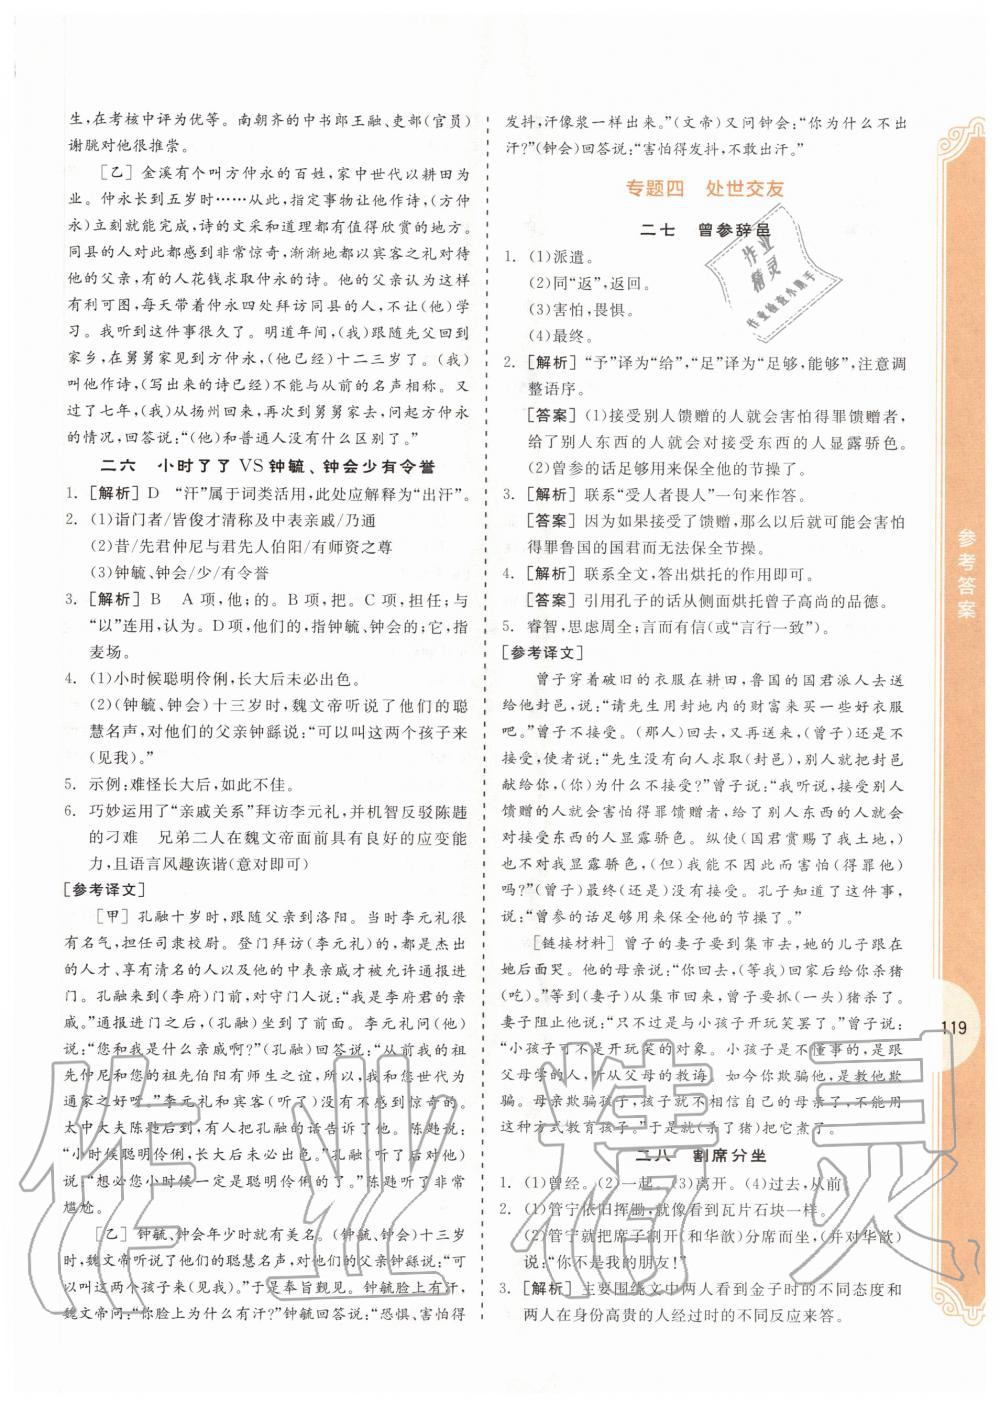 生，在考核中评为优等。南朝齐的中书郎王融、吏部（官员）
谢朓对他很推崇。
[乙]金溪有个叫方仲永的百姓，家中世代以耕田为
业。仲永长到五岁时……从此，指定事物让他作诗，（方仲
永）立刻就能完成，诗的文采和道理都有值得欣赏的地方。
同县的人都对此感到非常惊奇，渐渐地以宾客之礼对待
他的父亲，有的人花钱求取仲永的诗。他的父亲认为这样
有利可图，每天带着仲永四处拜访同县的人，不让（他）学
习。我听到这件事很久了。明道年间，（我）跟随先父回到
家乡，在舅舅家见到方仲永，（他已经）十二三岁了。（我）
叫他作诗，（写出来的诗已经）不能与从前的名声相称。又
过了七年，（我）从扬州回来，再次到舅舅家去，问起方仲永
的情况，回答说：“（他）和普通人没有什么区别了。”
二六 小时了了 VS 钟毓、钟会少有令誉
1. [解析] D “汗”属于词类活用，此处应解释为“出汗”。
2. (1)诣门者/皆俊才清称及中表亲戚/乃通
(2)昔/先君仲尼与君先人伯阳/有师资之尊
(3)钟毓、钟会/少/有令誉
3. [解析] B A项，他；的。B项，把。C项，担任；与
“以”连用，认为。D项，他们的，指钟毓、钟会的；它，指
麦场。
4. (1)小时候聪明伶俐，长大后未必出色。
(2)（钟毓、钟会）十三岁时，魏文帝听说了他们的聪
慧名声，对他们的父亲钟繇说：“可以叫这两个孩子来
（见我）。”
5. 示例：难怪长大后，如此不佳。
6. 巧妙运用了“亲戚关系”拜访李元礼，并机智反驳陈韪
的刁难 兄弟二人在魏文帝面前具有良好的应变能
力，且语言风趣诙谐（意对即可）
[参考译文]
[甲]孔融十岁时，跟随父亲到洛阳。当时李元礼很
有名气，担任司隶校尉。登门拜访（李元礼）的，都是杰出
的人才、享有清名的人以及中表亲戚才被通报。孔融来到（李府）门前，对守门人说：“我是李府君的亲
戚。”通报进门之后，（孔融）坐到了前面。李元礼问（他）
说：“您和我是什么亲戚啊？”（孔融）回答说：“从前我的祖
先仲尼和您的祖先伯阳有师生之谊，所以我和您世代为
通家之好呀。”李元礼和宾客（听了）没有不感到惊奇的。
太中大夫陈韪后到，有人把孔融的话告诉了他。陈韪说：
“小时候聪明伶俐，长大后未必出色。”孔融（听了）后
说：“想必您小时候一定是聪明伶俐的了。”陈韪听了非常
尴尬。
[乙]钟毓、钟会年少时就有美名。（钟毓、钟会）十三岁
时，魏文帝听说了他们的聪慧名声，对他们的父亲钟繇说：“可以
叫这两个孩子来（见我）。”于是奉旨觐见。钟毓脸上有汗，
魏文帝问：“你脸上为什么有汗？”钟毓回答说：“恐惧、害怕得
发抖，汗像浆一样出来。”（文帝）又问钟会：“你为什么不出
汗？”（钟会）回答说：“害怕得发抖，不敢出汗。”
专题四 处世交友
二七 曾参辞邑
1. (1)派遣。
(2)同“返”，返回。
(3)害怕，畏惧。
(4)最终。
2. [解析] “予”译为“给”，“足”译为“足够，能够”，注意调
整语序。
[答案] (1)接受别人馈赠的人就会害怕得罪馈赠者，
给了别人东西的人就会对接受东西的人显露骄色。
(2)曾参的话足够用来保全他的节操了。
3. [解析] 联系“受人者畏人”一句来作答。
[答案] 因为如果接受了馈赠，那么以后就可能会害
怕得罪鲁国的国君而无法保全节操。
4. [解析] 联系全文，答出烘托的作用即可。
[答案] 引用孔子的话从侧面烘托曾子高尚的品德。
5. 睿智，思虑周全；言而有信（或“言行一致”）。
[参考译文]
曾子穿着破旧的衣服在耕田，鲁国的国君派人去送
给他封邑，说：“请先生用封地内的财富来买一些好衣服
吧。”曾子不接受。（那人）回去，又再送来，（曾子）还是不
接受，使者说：“先生没有向人求取（封邑），是别人把封邑
献给你的，（你）为什么不接受？”曾子说：“我听说，接受别人
馈赠的人就会害怕得罪馈赠者，给了别人东西的人就会
对接受东西的人显露骄色。纵使（国君赏赐了我土地，）
也不对我显露骄色，（但）我能不因此而害怕（得罪他）
吗？”（曾子）最终（还是）没有接受。孔子知道了这件事，
说：“曾参的话足够用来保全他的节操了。”
[链接材料]曾子的妻子要到集市去，她的儿子跟在
她后面哭。他的母亲说：“你回去，（等我）回来给你杀猪
（吃）。”等到（妻子）从集市回来，曾子要抓（一头）猪杀了。
妻子阻止他说：“只不过与小孩子开玩笑罢了。”曾子说：
“小孩子可不是开玩笑的对象。小孩子是不懂事的，是跟
父母学的，听从父母的教诲。如今你欺骗他，是教他欺
骗。母亲欺骗孩子，孩子就不相信自己的母亲了，不能用
这种方式教育孩子。”于是就（杀了猪）把它煮了。
二八 割席分坐
1. (1)曾经。(2)一起。(3)离开。(4)过去，从前
2. (1)管宁依旧挥锄，就看到瓦片石块一样。
(2)管宁就把席子割开（和华歆）分席而坐，（并对华歆）
说：“你不是我的朋友！”
3. [解析] 主要围绕文中两人看到金子时的不同态度和
两人在身份高贵的人经过时的不同反应来答。
参考答案
119
作业精灵
作业检查小助手
作业精灵